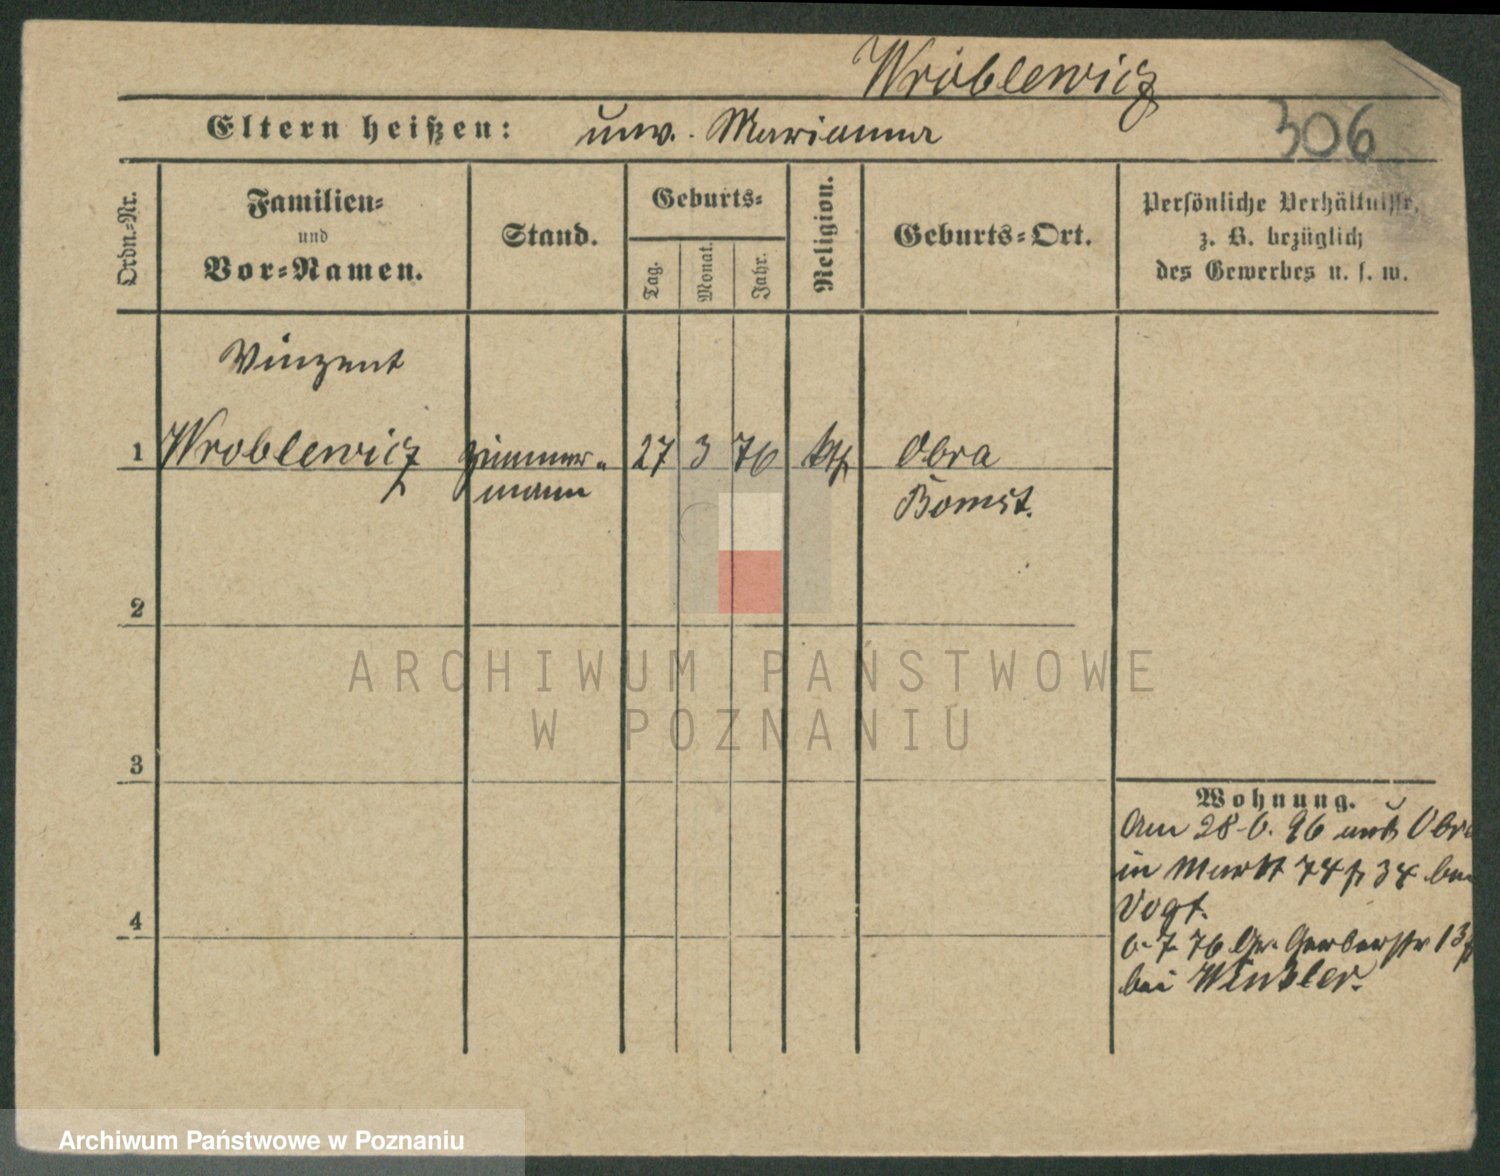 Wróblewicz
Eltern heißen: unv. Marianna
306
Ordn.-Nr.
Familien-
und
Vor-Namen.
Stand.
Geburts-
Tag.
Monat.
Jahr.
Religion.
Geburts-Ort.
Persönliche Verhältnisse,
z. B. bezüglich
des Gewerbes u. s. w.
Vinzent
1 Wroblewicz Zimmer- 27 3 76 kth Obra
mann Bomst.
2
3
4
ARCHIWUM PAŃSTWOWE
W POZNANIU
Wohnung.
Am 28 6. 96 aus Obra
in Markt 74 p 34 bei
Vogt.
6. 7. 76 Gr. Gerberstr 13
bei Winkler.
Archiwum Państwowe w Poznaniu